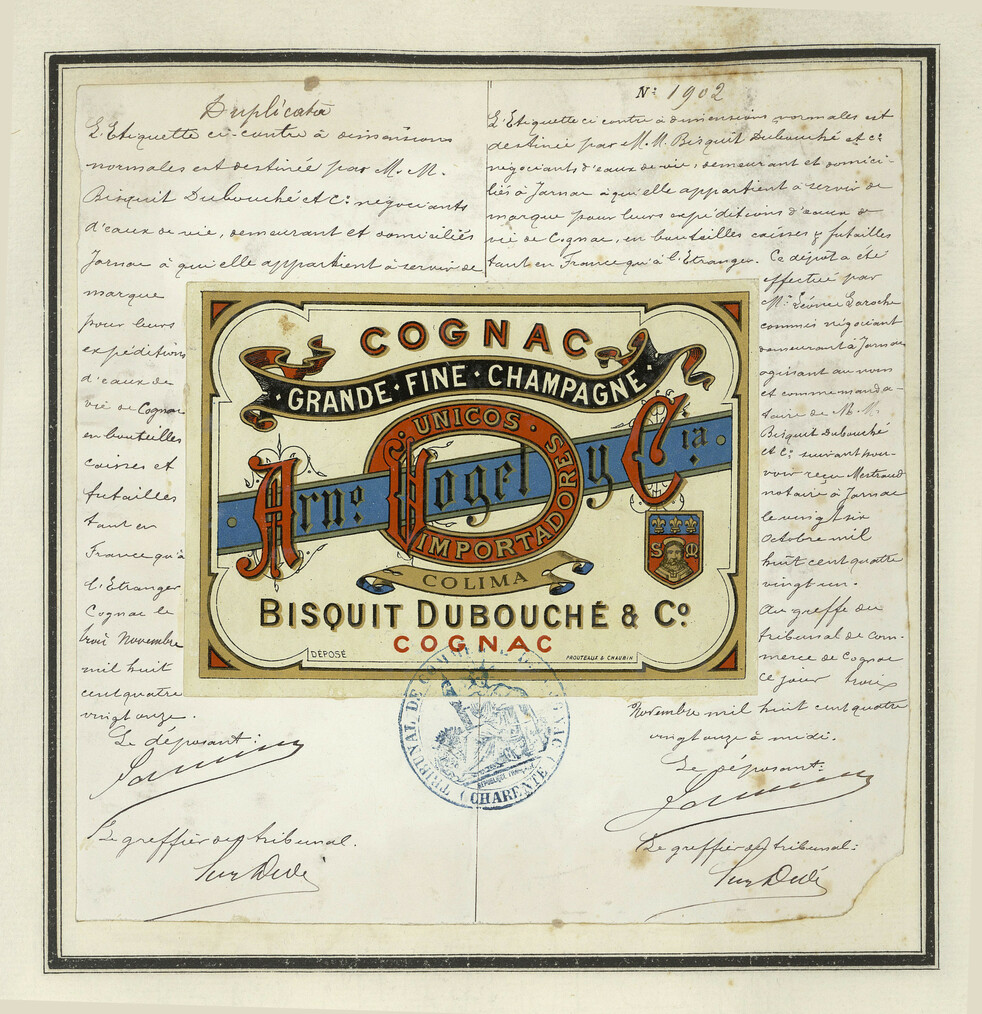 Duplicata
L'Etiquette ci-contre à dimensions
normales est destinée par M. M.
Bisquit Dubouché et Cⁱᵉ négociants
d'eaux de vie, demeurant et domiciliés
Jarnac à qui elle appartient à servir de
marque
pour leurs
expéditions
d'eaux de
vie de Cognac
en bouteilles
caisses et
futailles
tant en
France qu'à
l'Etranger
Cognac le
trois Novembre
mil huit
cent quatre
vingt onze.
Le déposant:
Le greffier du tribunal.
Nº 1902
L'Etiquette ci contre à dimensions normales est
destinée par M. M. Bisquit Dubouché et Cⁱᵉ
négociants d'eaux de vie, demeurant et domici-
liés à Jarnac à qui elle appartient à servir de
marque pour leurs expéditions d'eaux de
vie de Cognac, en bouteilles caisses & futailles
tant en France qu'à l'Etranger. Ce dépôt a été
effectué par
Mʳ Léonce Laroche
commis négociant
demeurant à Jarnac
agissant au nom
et comme manda-
taire de M. M.
Bisquit Dubouché
et Cⁱᵉ suivant pou-
voir reçu Mertraud
notaire à Jarnac
le vingt six
Octobre mil
huit cent quatre
vingt un.
Au greffe du
tribunal de com-
merce de Cognac
ce jour trois
Novembre mil huit cent quatre
vingt onze à midi.
Le déposant:
Le greffier du tribunal:
COGNAC
·GRANDE·FINE·CHAMPAGNE·
UNICOS
Arnº Vogel y Cⁱᵃ
IMPORTADORES
COLIMA
S M
BISQUIT DUBOUCHÉ & Cº
COGNAC
DÉPOSÉ
PROUTEAUX & CHAUBIN
TRIBUNAL DE COMMERCE DE COGNAC
RÉPUBLIQUE FRANÇAISE
(CHARENTE)